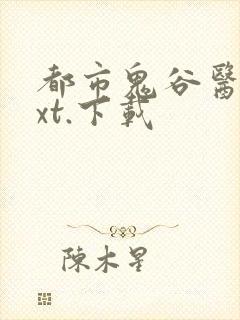 都市鬼谷醫
xt.下載
陳木星